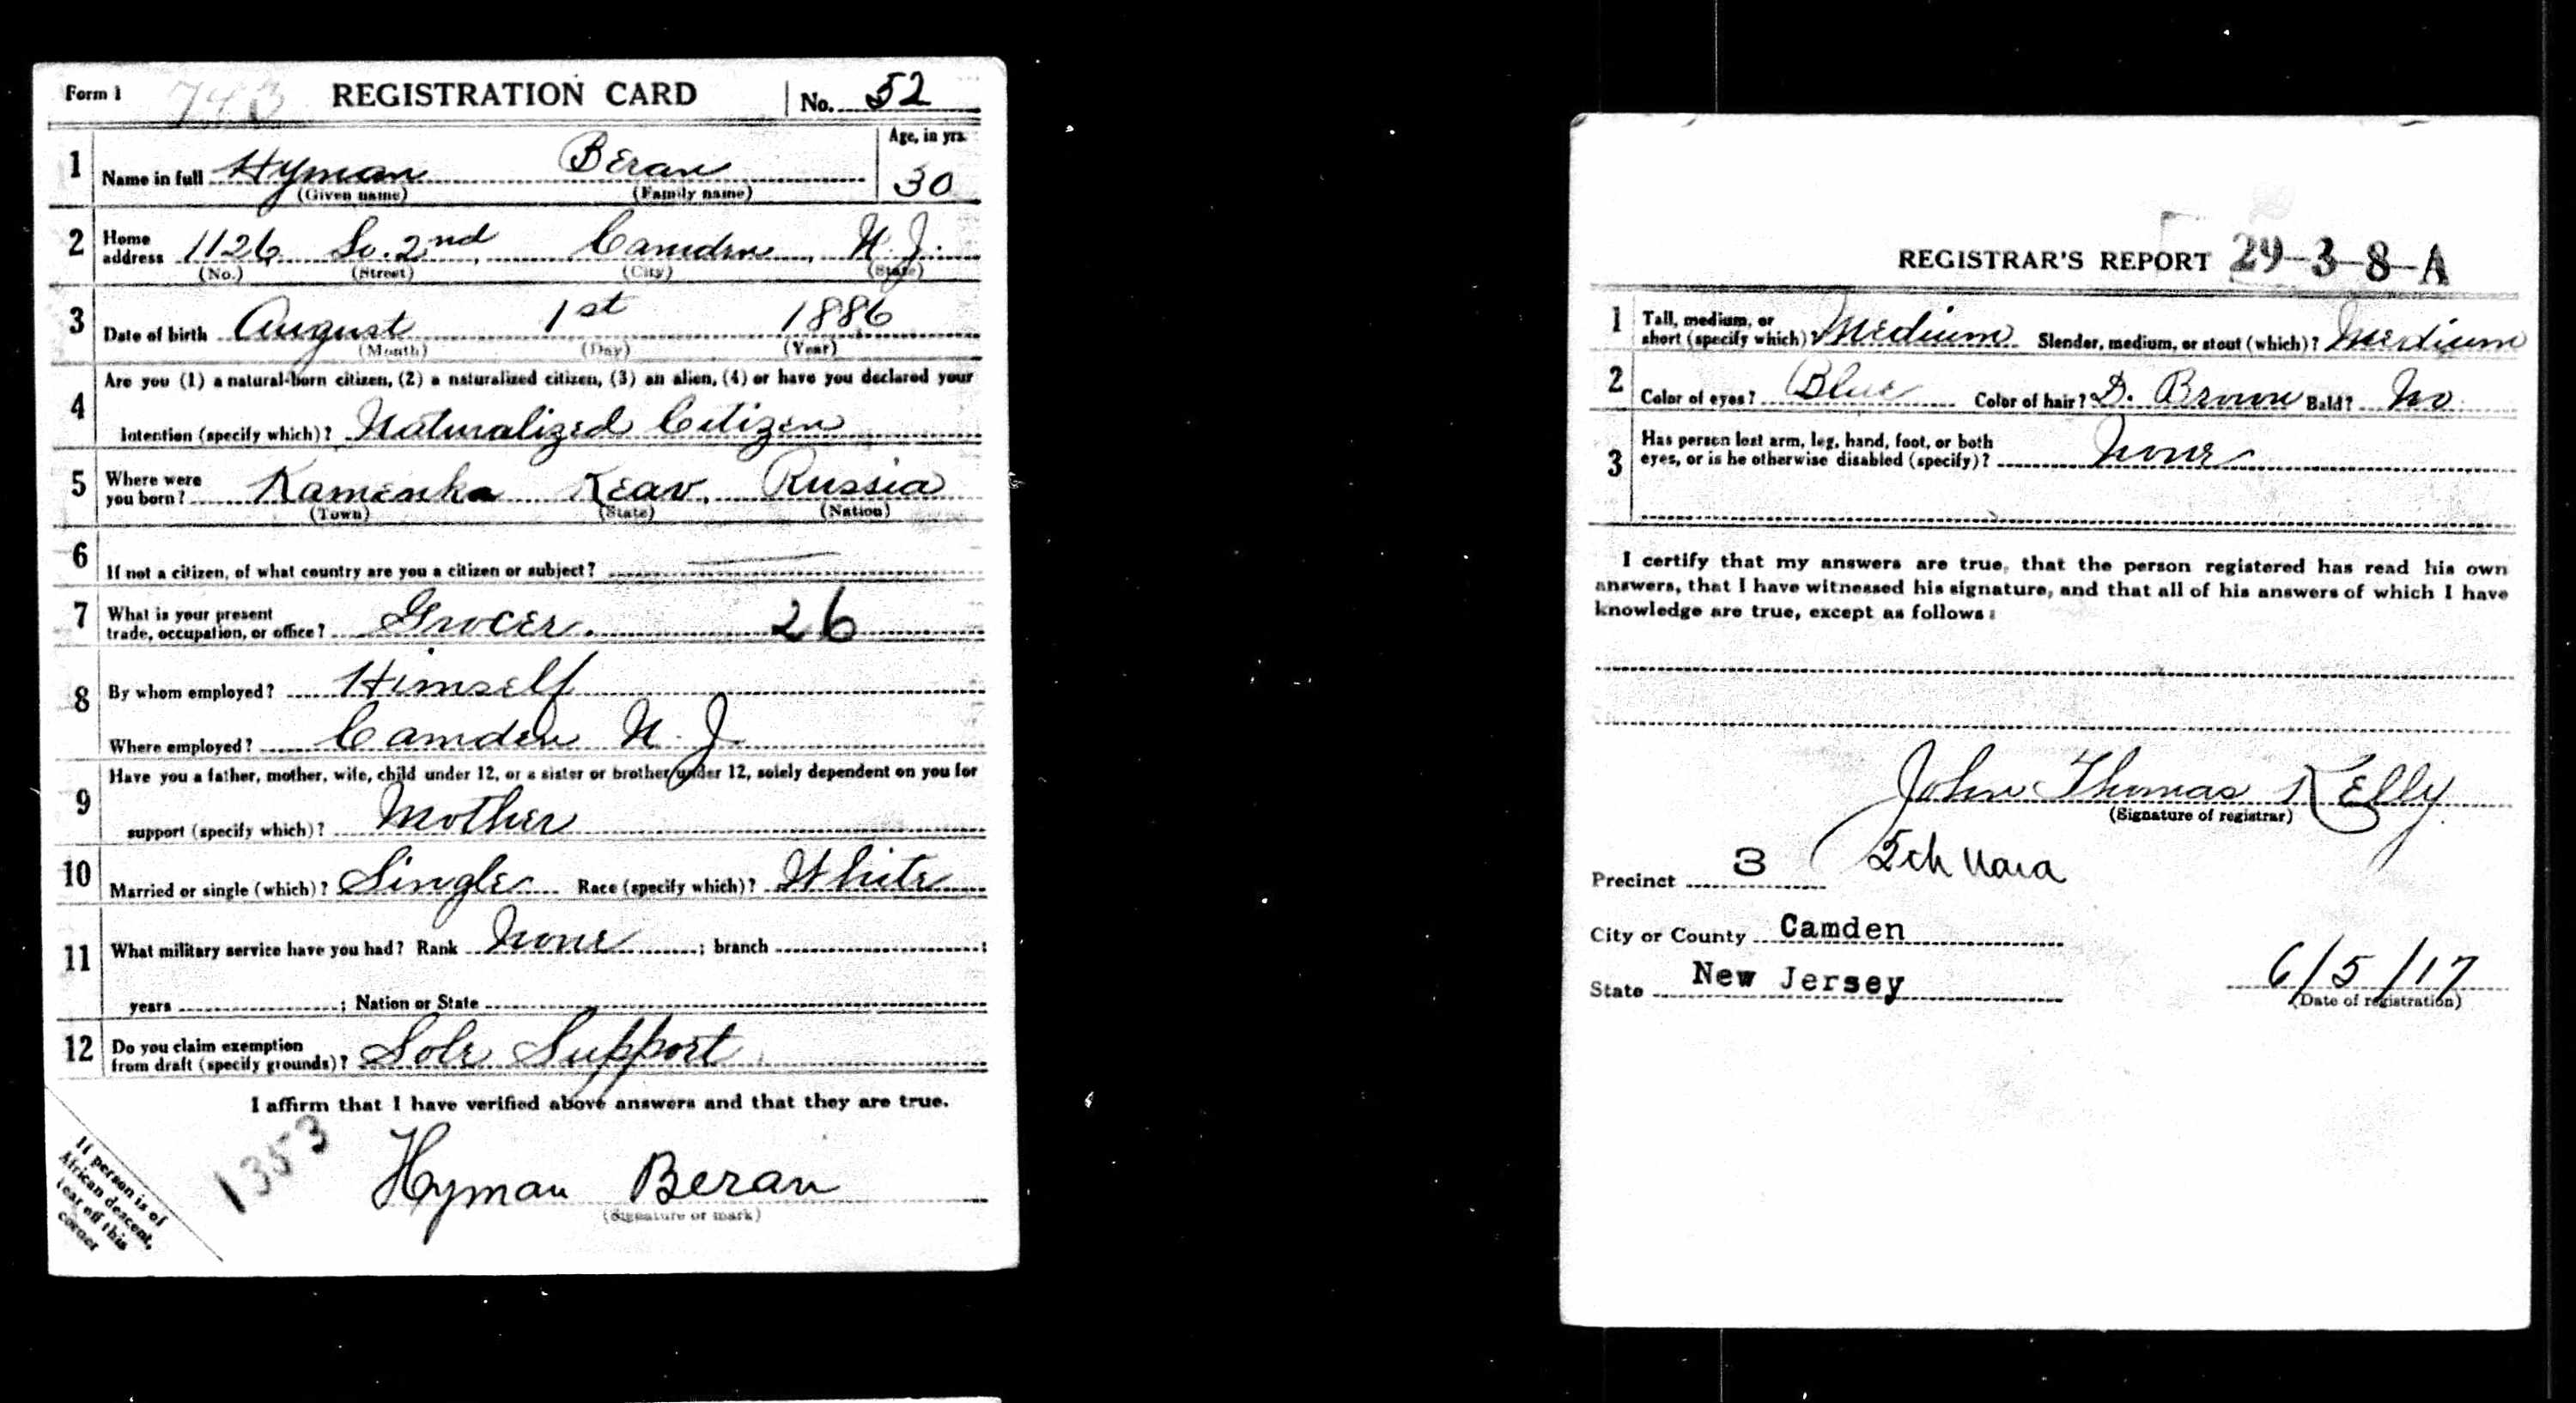 Form 1 743 REGISTRATION CARD No. 52
1 Name in full Hyman Beran Age, in yrs. 30
(Given name) (Family name)
2 Home address 1126 So. 2nd, Camden, N.J.
(No.) (Street) (City) (State)
3 Date of birth August 1st 1886
(Month) (Day) (Year)
4 Are you (1) a natural-born citizen, (2) a naturalized citizen, (3) an alien, (4) or have you declared your
intention (specify which)? Naturalized Citizen
5 Where were you born? Kamenka Keav, Russia
(Town) (State) (Nation)
6 If not a citizen, of what country are you a citizen or subject?
7 What is your present trade, occupation, or office? Grocer. 26
8 By whom employed? Himself
Where employed? Camden N.J.
9 Have you a father, mother, wife, child under 12, or a sister or brother under 12, solely dependent on you for
support (specify which)? Mother
10 Married or single (which)? Single Race (specify which)? White
11 What military service have you had? Rank None ; branch ;
years ; Nation or State
12 Do you claim exemption from draft (specify grounds)? Sole Support
I affirm that I have verified above answers and that they are true.
1353
Hyman Beran
(Signature or mark)
If person is of
African descent,
tear off this
corner
REGISTRAR'S REPORT 29-3-8-A
1 Tall, medium, or short (specify which)? Medium Slender, medium, or stout (which)? Medium
2 Color of eyes? Blue Color of hair? D. Brown Bald? No
3 Has person lost arm, leg, hand, foot, or both
eyes, or is he otherwise disabled (specify)? None
I certify that my answers are true, that the person registered has read his own
answers, that I have witnessed his signature, and that all of his answers of which I have
knowledge are true, except as follows:
John Thomas Kelly
(Signature of registrar)
Precinct 3
City or County Camden
State New Jersey
6/5/17
(Date of registration)